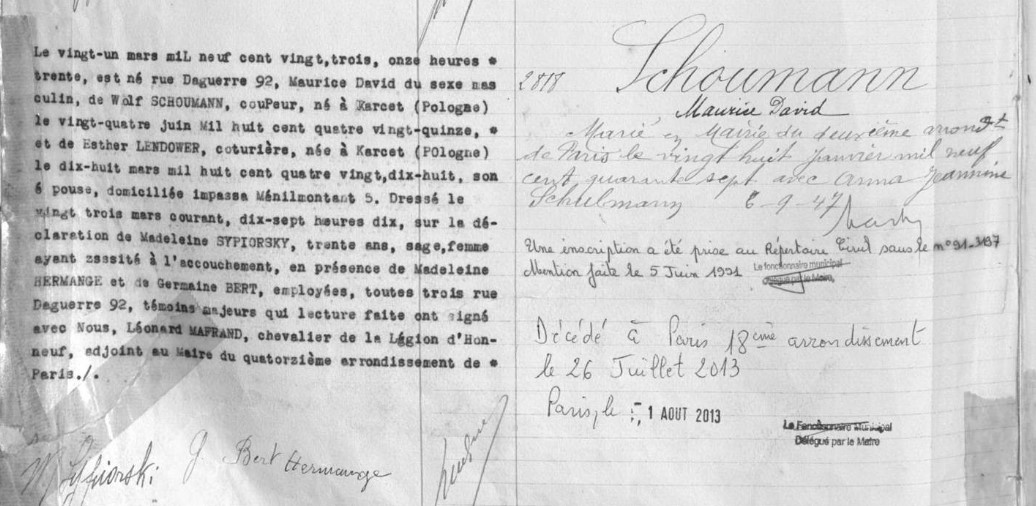 Le vingt-un mars miL neuf cent vingt,trois, onze heures *
trente, est né rue Daguerre 92, Maurice David du sexe mas
culin, de Wolf SCHOUMANN, couPeur, né à Karcet (Pologne)
le vingt-quatre juin Mil huit cent quatre vingt-quinze, *
et de Esther LENDOWER, coturière, née à Karcet (POlogne)
le dix-huit mars mil huit cent quatre vingt,dix-huit, son
é pouse, domiciliée impassa Ménilmontant 5. Dressé le
vingt trois mars courant, dix-sept heures dix, sur la dé-
claration de Madeleine SYPIORSKY, trente ans, sage,femme
ayant zsssité à l'accouchement, en présence de Madeleine
HERMANGE et de Germaine BERT, employées, toutes trois rue
Daguerre 92, témoins majeurs qui lecture faite ont signé
avec Nous, Léonard MAFRAND, chevalier de la Légion d'Hon-
neuf, adjoint au Maire du quatorzième arrondissement de *
Paris./.
G Bert Hermange
Schoumann
2818
Maurice David
Marié en Mairie du deuxième arrondt
de Paris le vingt huit janvier mil neuf
cent quarante sept avec Anna Jeannine
Schulmann 6-9-47
Une inscription a été prise au Répertoire Civil sous le n°91-3197
Mention faite le 5 Juin 1991
Le fonctionnaire municipal
délégué par le Maire,
Décédé à Paris 18ème arrondissement
le 26 Juillet 2013
Paris, le 1 AOUT 2013
Le Fonctionnaire Municipal
Délégué par le Maire